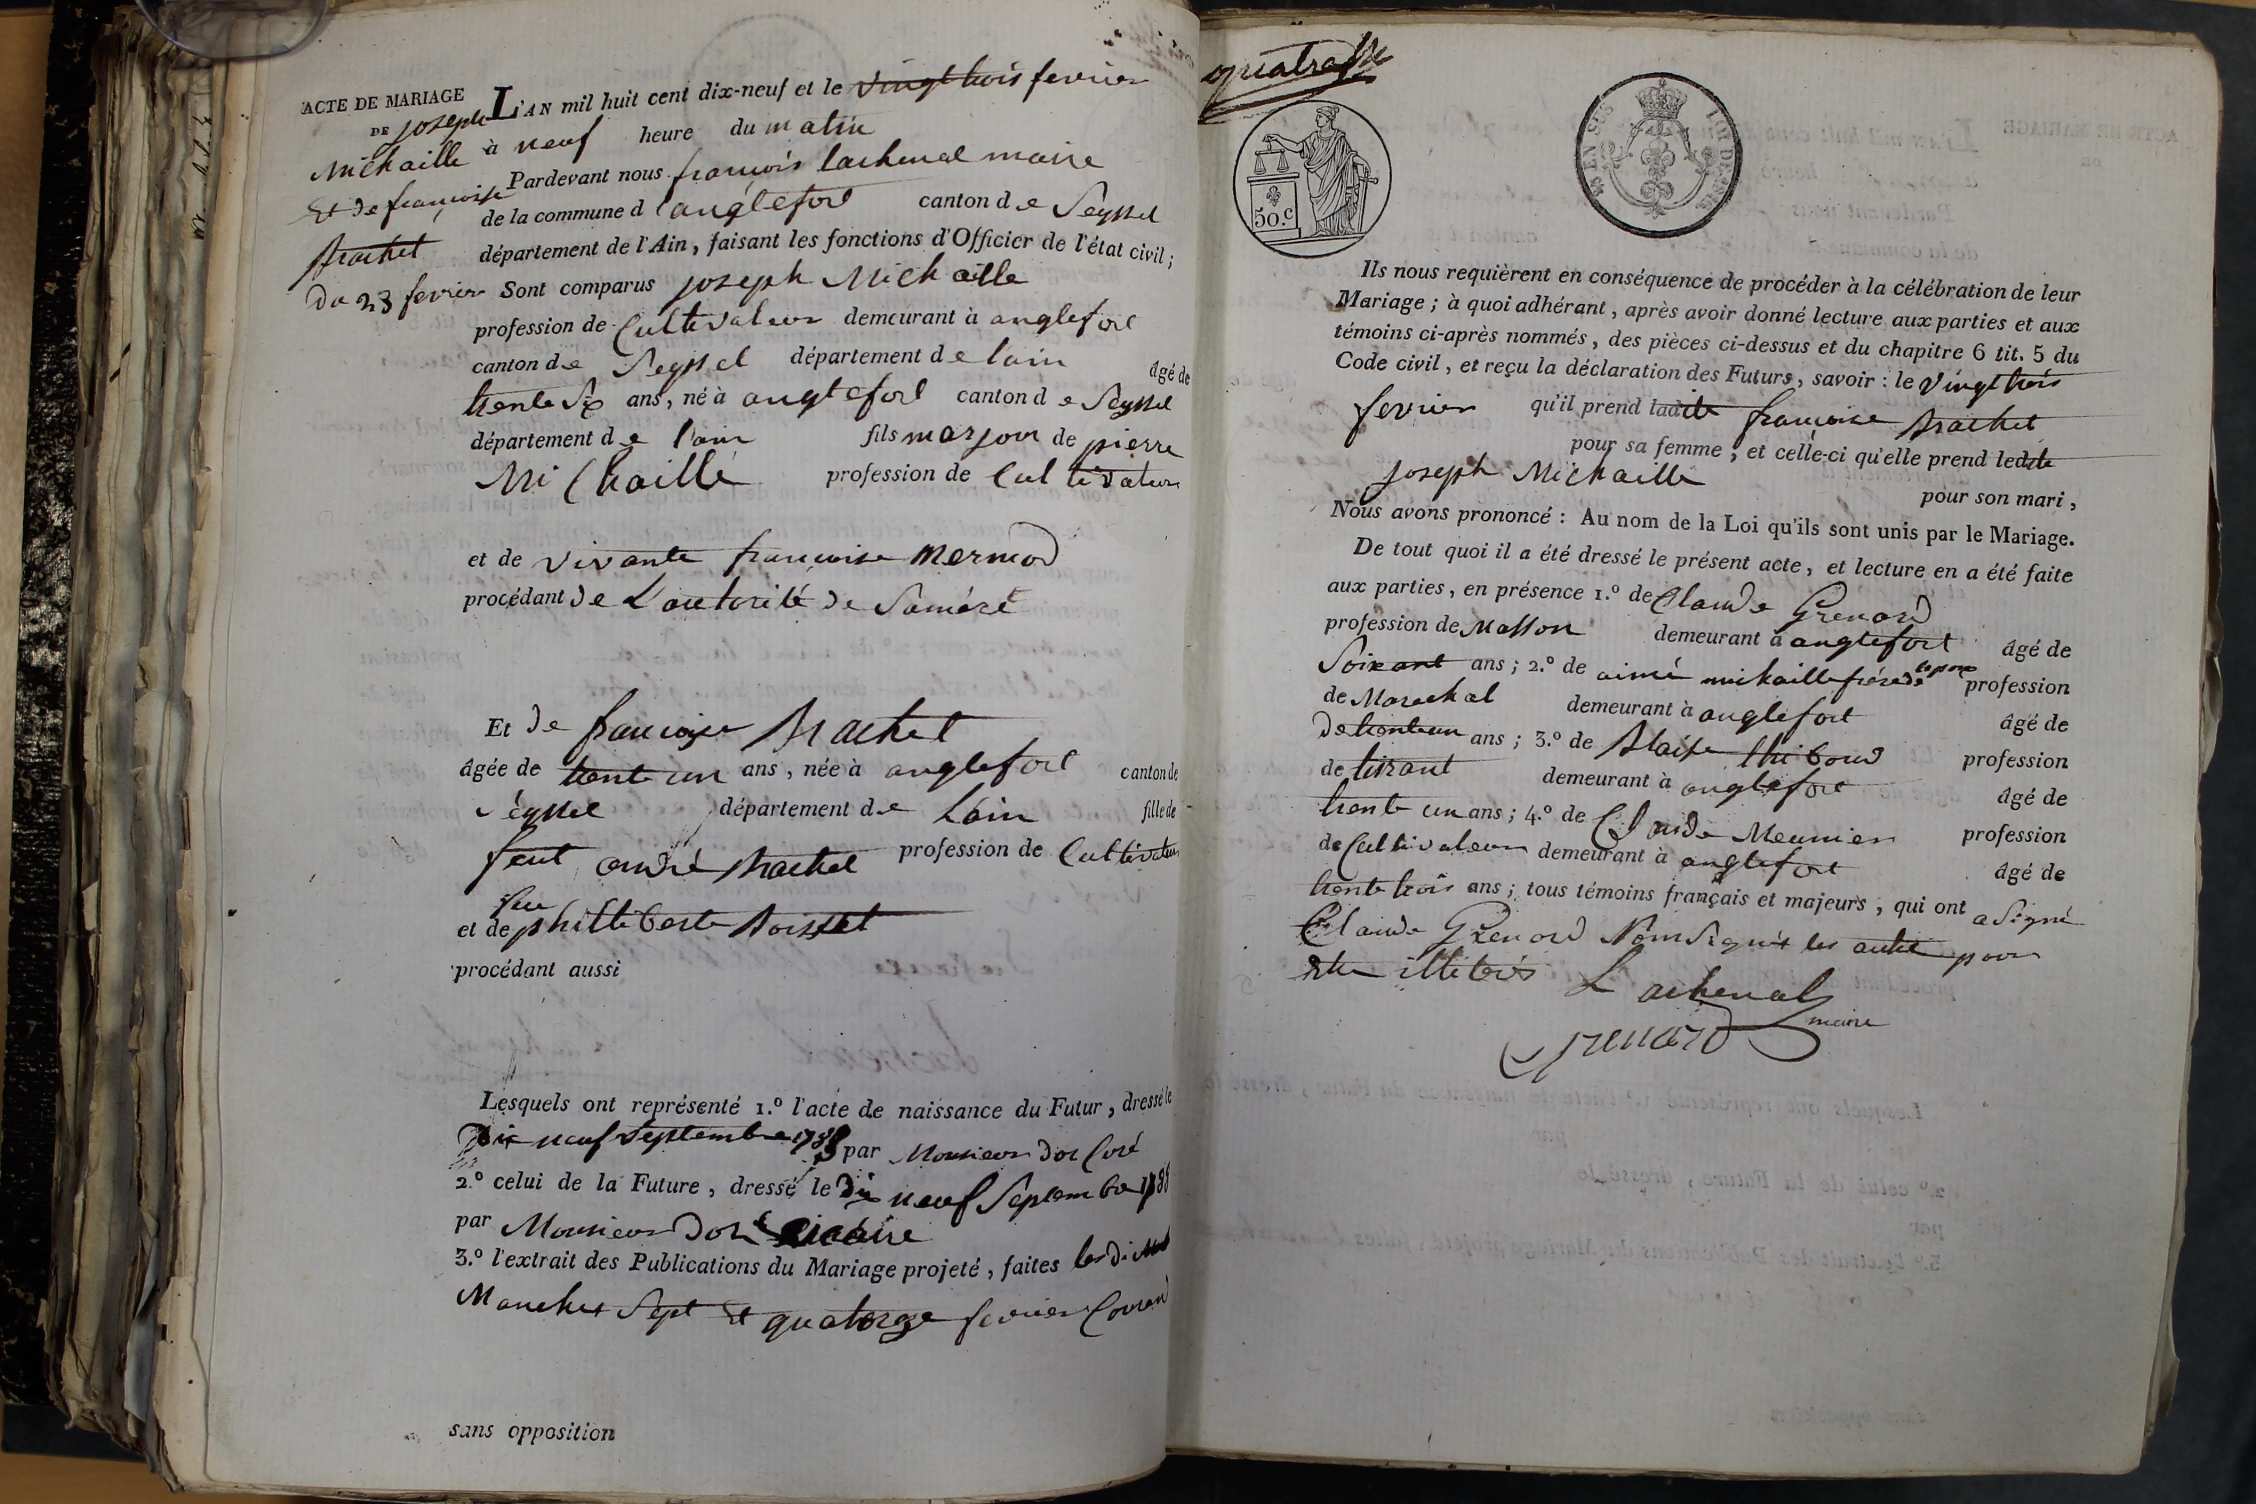 ACTE DE MARIAGE
DE joseph
Michaille
Et de françoise
Brachet
Du 23 fevrier
L'AN mil huit cent dix-neuf et le vingt trois fevrier
à neuf heure du matin
Pardevant nous françois Lachenal maire
de la commune d'anglefort canton de Seyssel
département de l'Ain, faisant les fonctions d'Officier de l'état civil;
Sont comparus joseph Michaille
profession de Cultivateur demeurant à anglefort
canton de Seyssel département de lain âgé de
trente six ans, né à anglefort canton de Seyssel
département de l'ain fils marjour de pierre
Michaille profession de Cultivateur
et de vivante françoise Mermod
procédant de L'autorité de Saméré
Et de françoise Brachet
âgée de trente un ans, née à anglefort canton de
Seyssel département de Lain fille de
feut andré Brachet profession de Cultivateur
et de feu philleberte Boisset
procédant aussi
Lesquels ont représenté 1.º l'acte de naissance du Futur, dressé le
Dix neuf Septembre par Monsieur Dor Curé
2.º celui de la Future, dressé le Dix neuf Septembre 1788
par Monsieur Dor vicaire
3.º l'extrait des Publications du Mariage projeté, faites les
Manches Sept et quatorze fevrier Courand
sans opposition
quatre
50.C
Ils nous requièrent en conséquence de procéder à la célébration de leur
Mariage; à quoi adhérant, après avoir donné lecture aux parties et aux
témoins ci-après nommés, des pièces ci-dessus et du chapitre 6 tit. 5 du
Code civil, et reçu la déclaration des Futurs, savoir: le vingt trois
fevrier qu'il prend ladite françoise Brachet
pour sa femme, et celle-ci qu'elle prend ledite
joseph Michaille pour son mari,
Nous avons prononcé: Au nom de la Loi qu'ils sont unis par le Mariage.
De tout quoi il a été dressé le présent acte, et lecture en a été faite
aux parties, en présence 1.º de Claude Grenard
profession de Masson demeurant à anglefort âgé de
Soixant ans; 2.º de aimé michaille frère de lepoux profession
de Marechal demeurant à anglefort âgé de
de trenteun ans; 3.º de Blaise thiboud profession
de tisrant demeurant à anglefort âgé de
trente un ans; 4.º de Claude Meunier profession
de Cultivateur demeurant à anglefort âgé de
trente trois ans; tous témoins français et majeurs, qui ont a Signé
Claude Grenard Nom Signés les autre pour
etre illiterés
Lachenal
maire
grenard